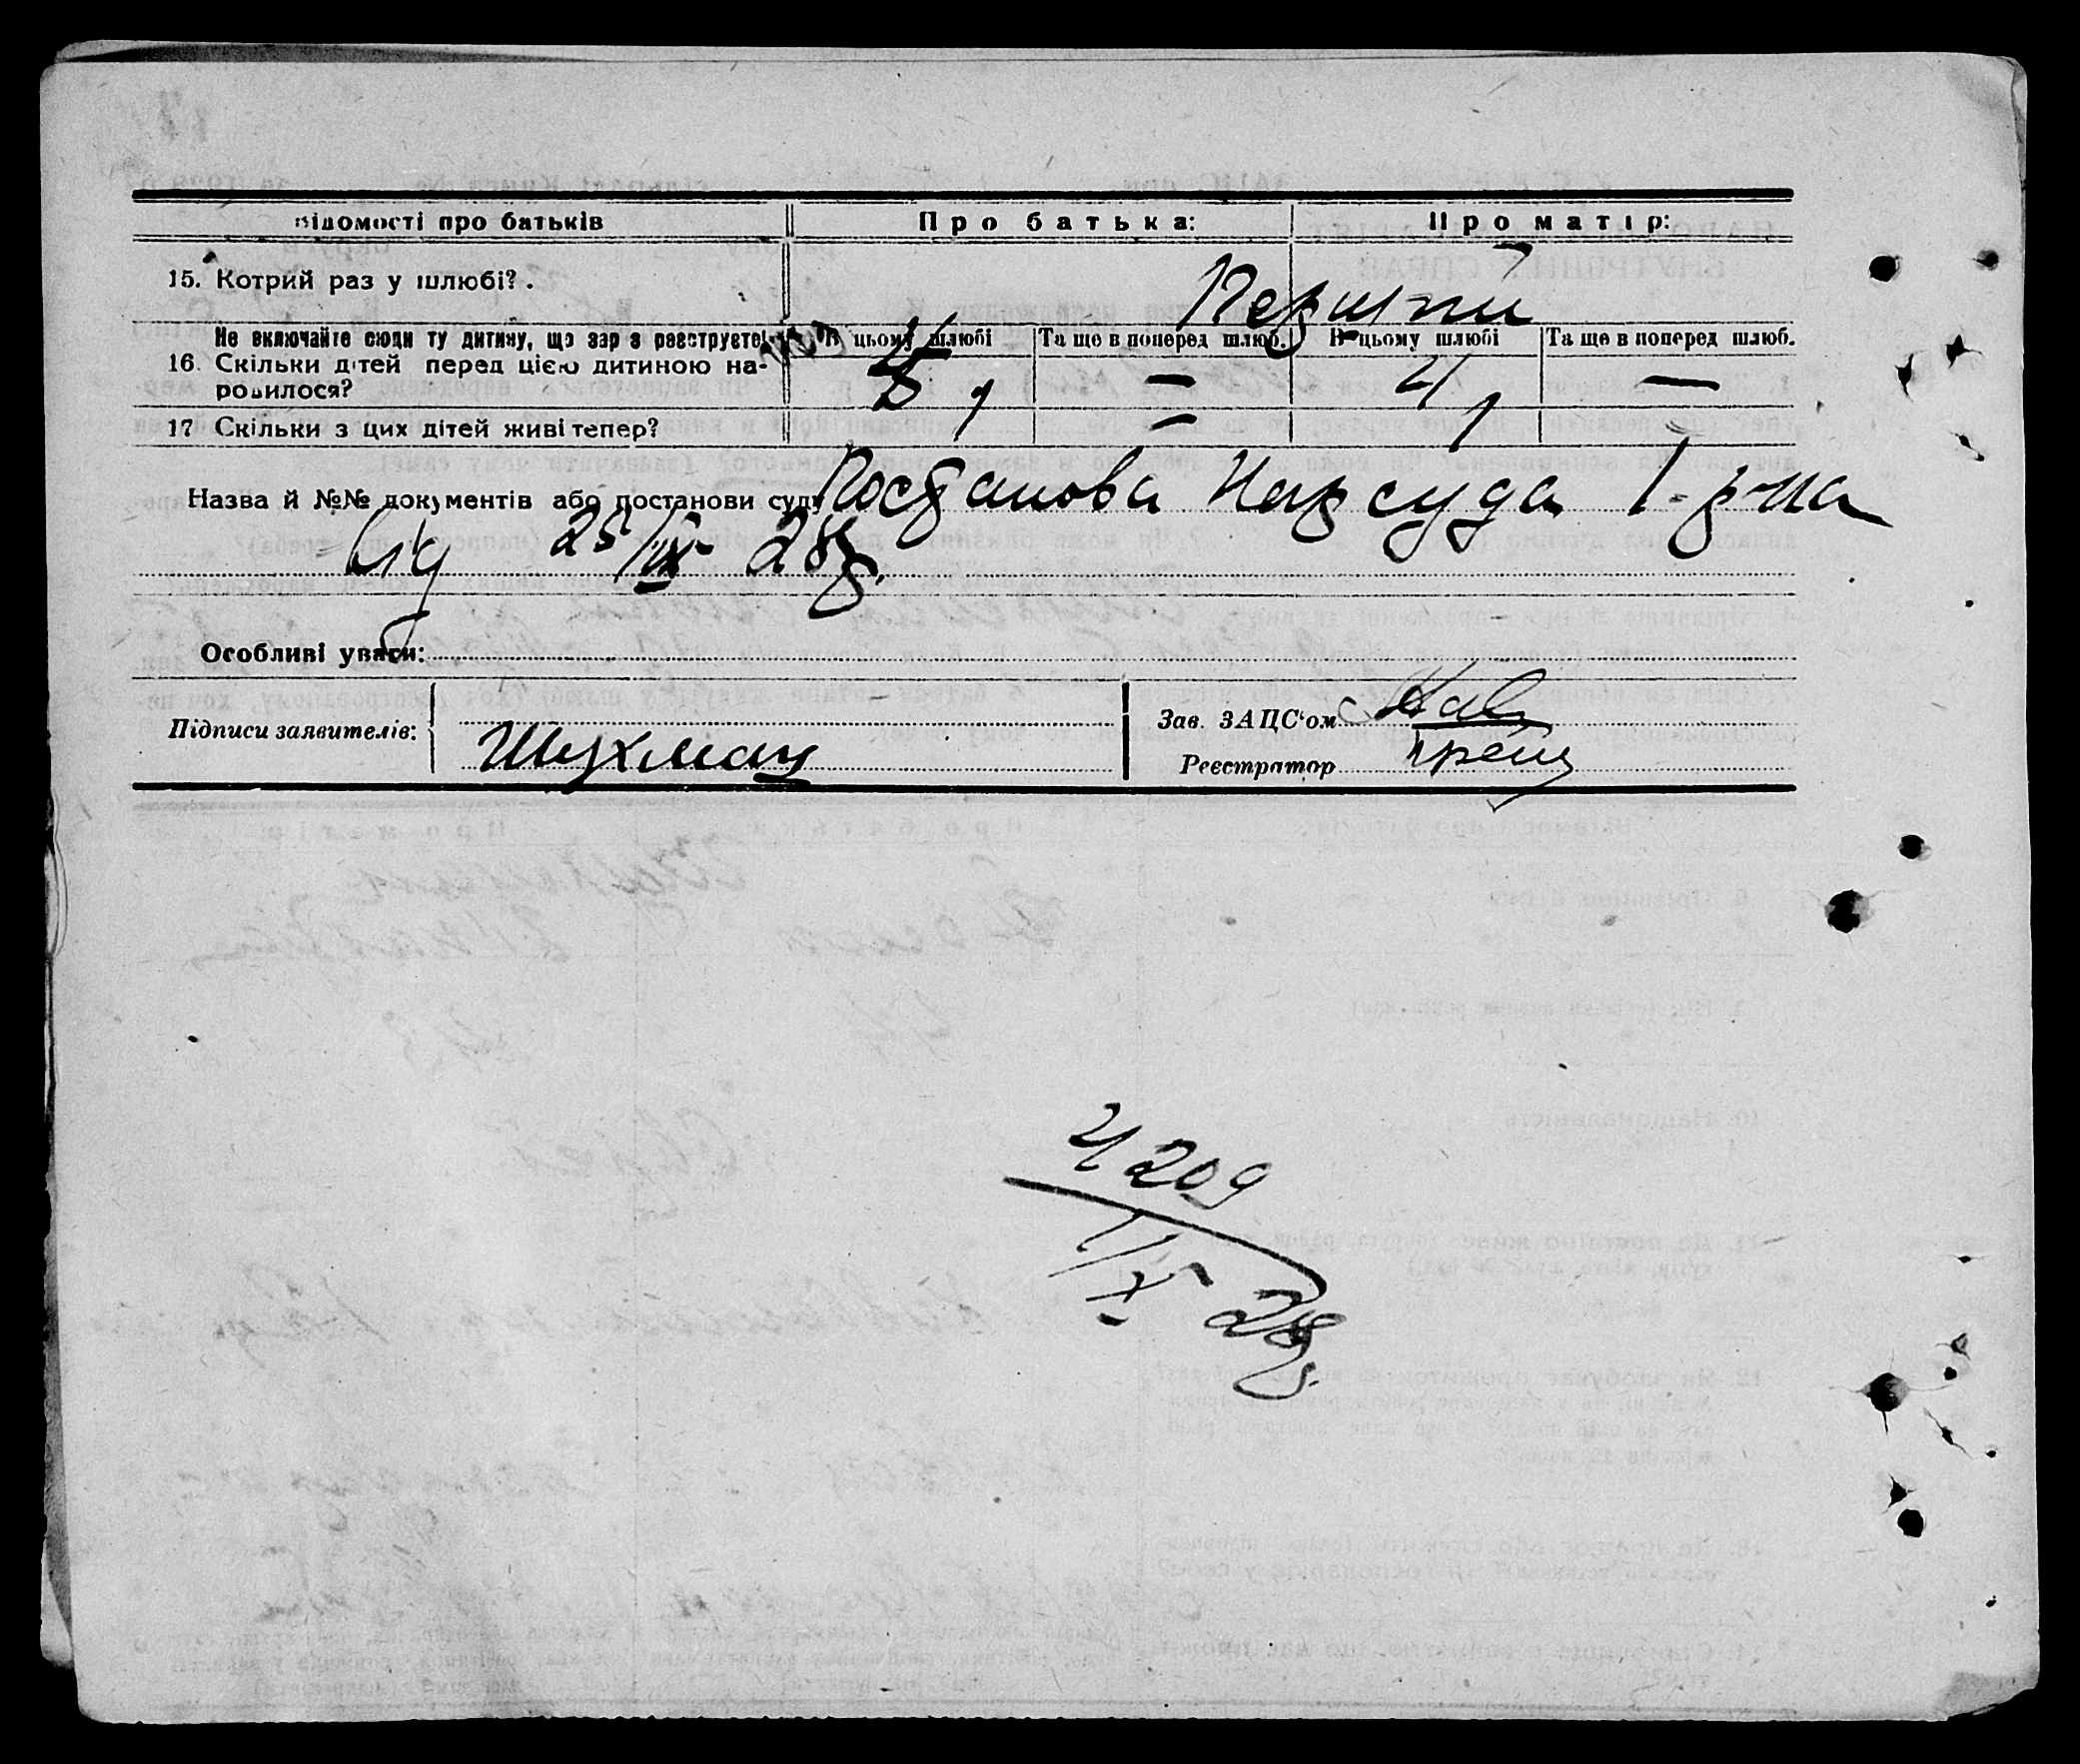 Відомості про батьків Про батька: Про матір:
15. Котрий раз у шлюбі? . Перший
Не включайте сюди ту дитину, що зараз реєструєте! В цьому шлюбі Та ще в поперед шлюб. В цьому шлюбі Та ще в поперед шлюб.
16. Скільки дітей перед цією дитиною на- — 4 —
родилося?
17 Скільки з цих дітей живі тепер? —
Назва й №№ документів або постанови суду Постанова Нарсуда 1-р-на
від 25/IX 28 р.
Особливі уваги:
Підписи заявителів: Зав. ЗАЦС'ом
Шухман Реєстратор
4209
1/X 28 р.